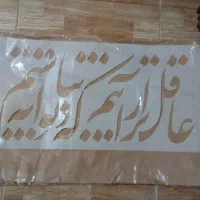 عاقل تر از آنیم که دیوانه نباشیم